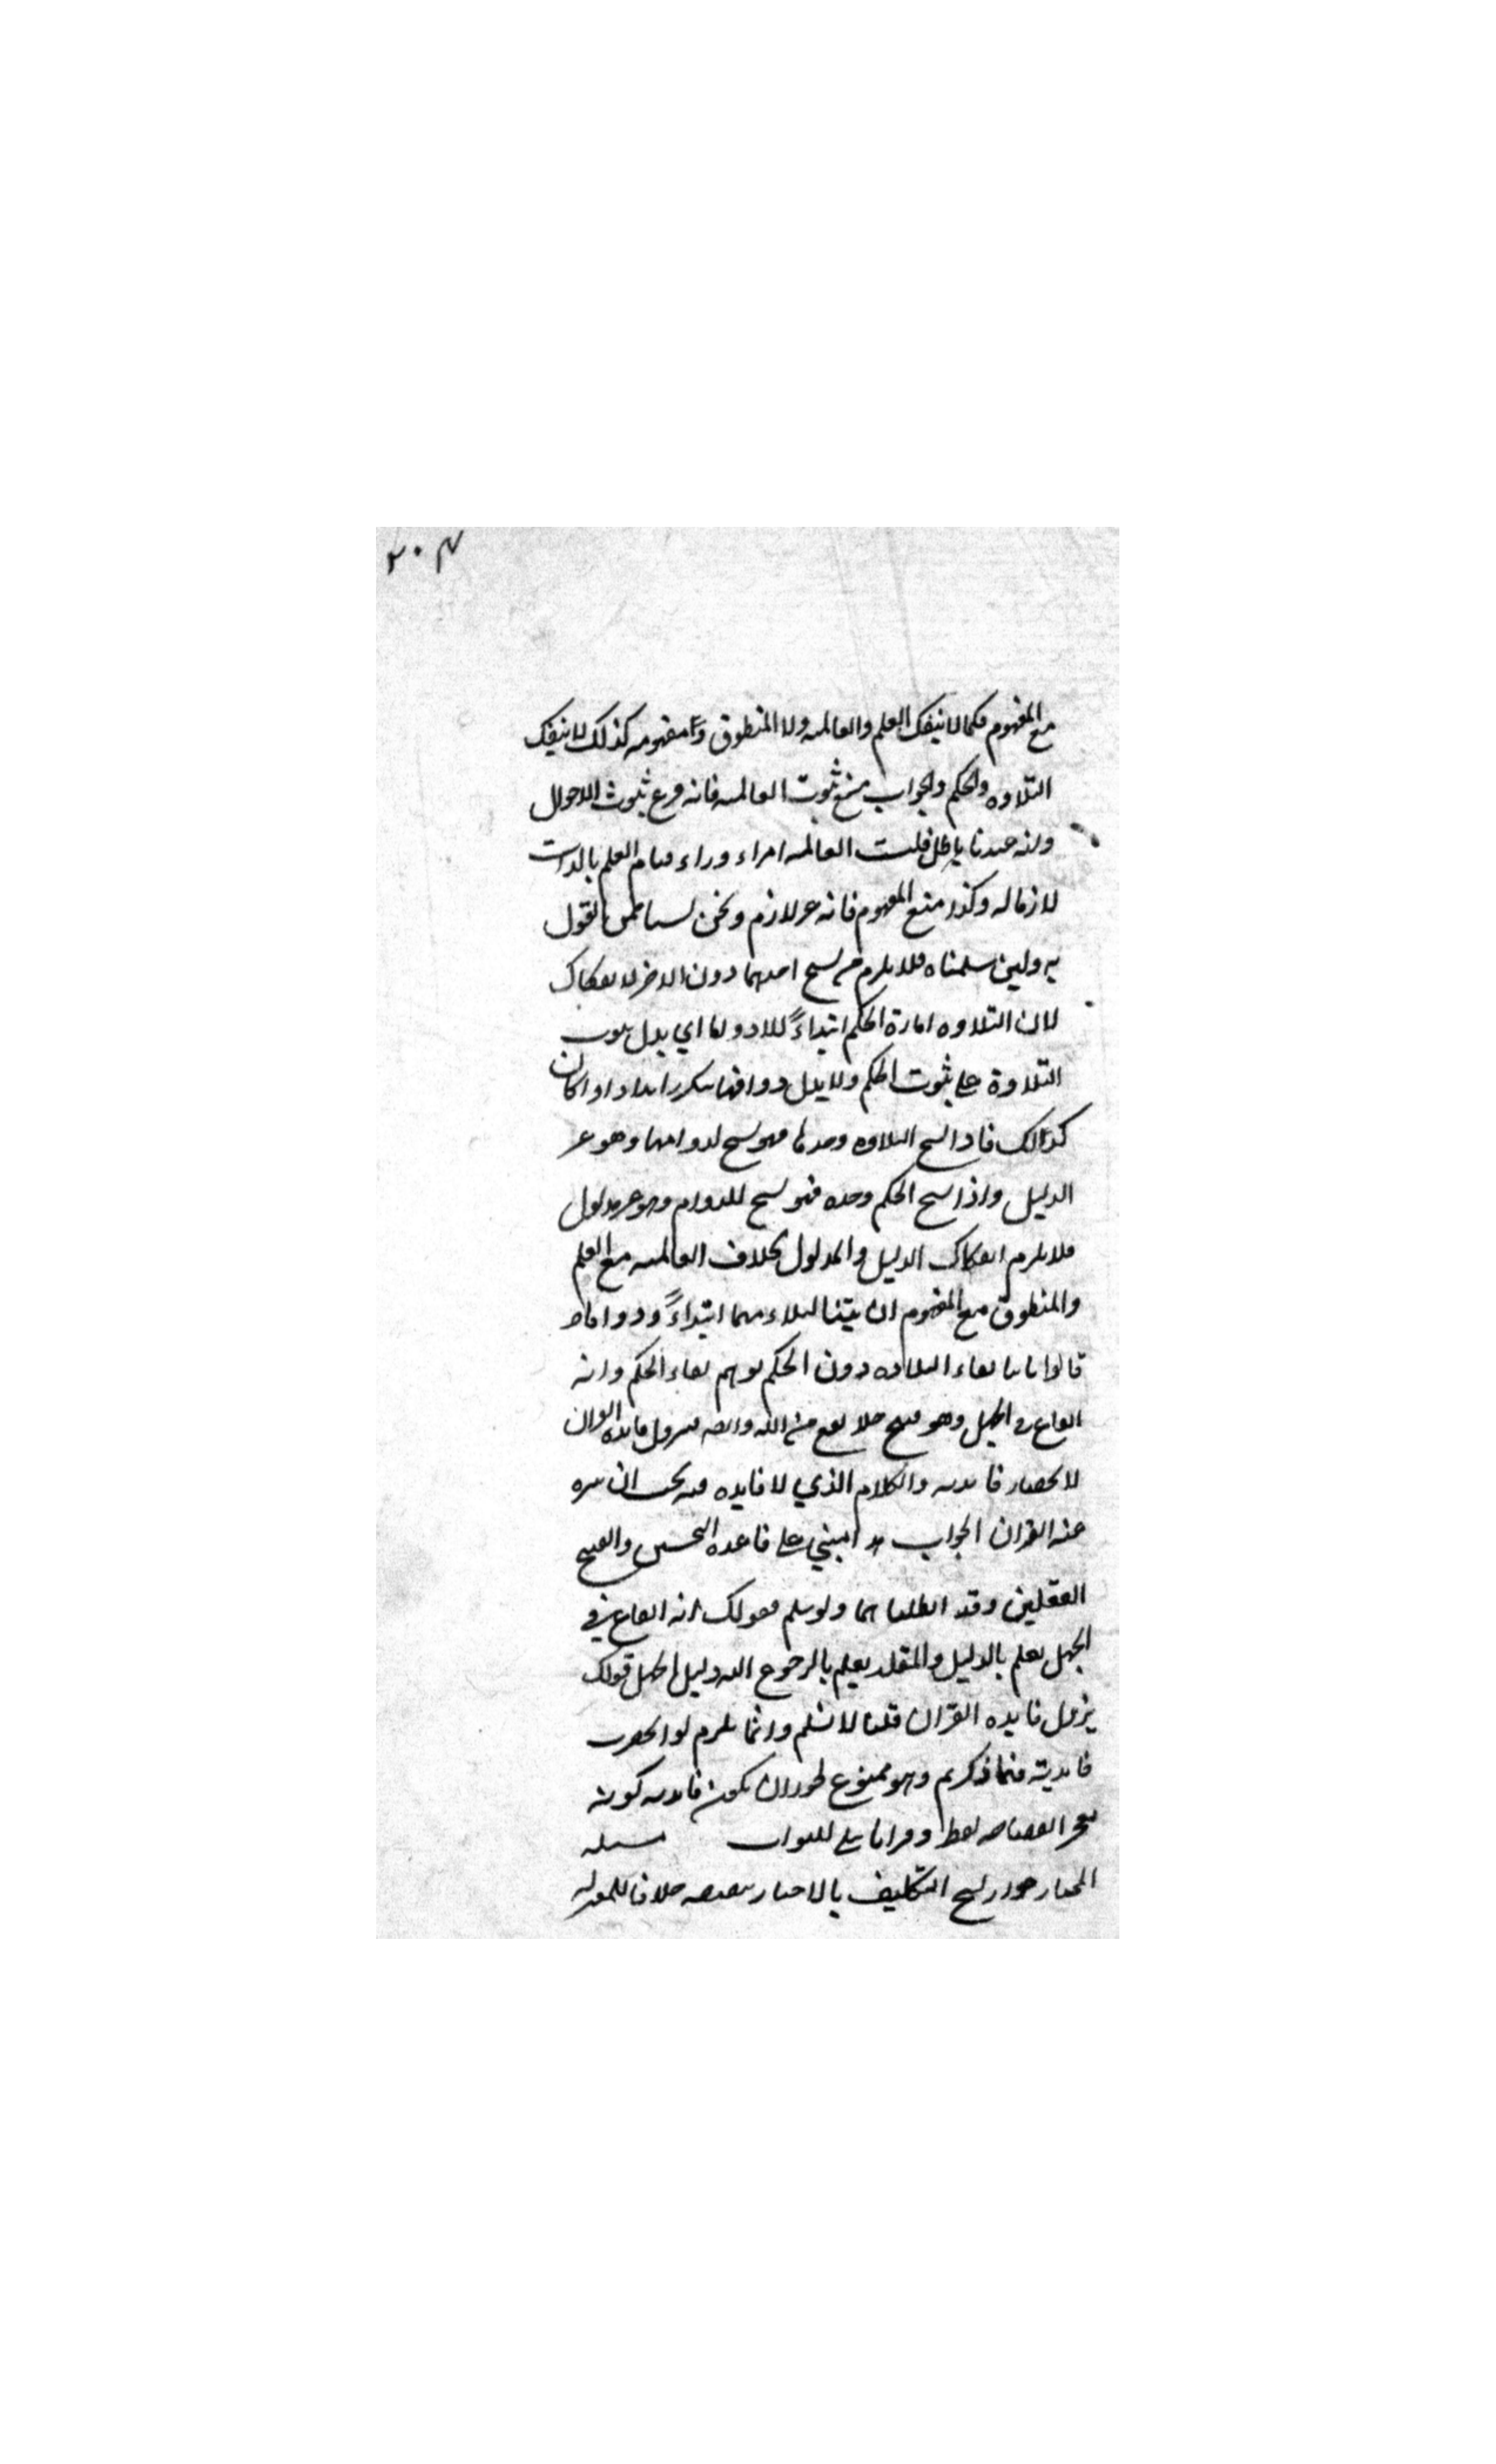 ٢٠٣
مع المفهوم فكما لا ينفك العلم والعالمية ولا المنطوق ومفهومه كذلك لا ينفك
التلاوه والحكم والجواب منع ثبوت العالمية فانه فرع ثبوت الاحوال
وانه عندنا باطل فليست العالمية امراء وراء قيام العلم بالذات
لازما له وكذا منع المفهوم فانه غير لازم ونحن لسنا ممن القول
به ولين سلمناه فلا يلزم من نسخ احدهما دون الاخر الانفكاك
لان التلاوه امارة الحكم ابتداءً لا دواما اي يدل ثبوت
التلاوة على ثبوت الحكم ولا يدل دوامها تكرر ابدا واذا كان
كذالك فاذا نسخ التلاوه وحدها فهو نسخ لدوامها وهو غير
الدليل واذا نسخ الحكم وحده فهو نسخ للدوام وهو غير مدلول
فلا يلزم انفكاك الدليل والمدلول بخلاف العالمية مع العلم
والمنطوق مع المفهوم ان بيتنا لتلازمهما ابتداءً ودواما
قالوا ثانيا بقاء التلاوه دون الحكم يوهم بقاء الحكم وانه
ايقاع في الجهل وهو قبيح فلا يقع من الله وايضا فيزول فائدة القران
لانحصار فائدته والكلام الذي لا فايده فيه يجب ان ينزه
عنه القران الجواب مبني على قاعده التحسين والتقبيح
العقلين وقد ابطلناهما ولو سلم فقولك انه ايقاع في
الجهل يعلم بالدليل والمقلد يعلم بالرجوع اليه دليل الجهل قولك
يزول فايده القران قلنا لا نسلم وانما يلزم لو انحصرت
فائديته فيما ذكرتم وهو ممنوع لجواز ان يكون فائدته كونه
معجزا لفصاحه لفظه وقرانا يتلى للثواب مسئله
المختار جواز نسخ التكليف بالاخبار بنقيضه خلافا للمعتزله